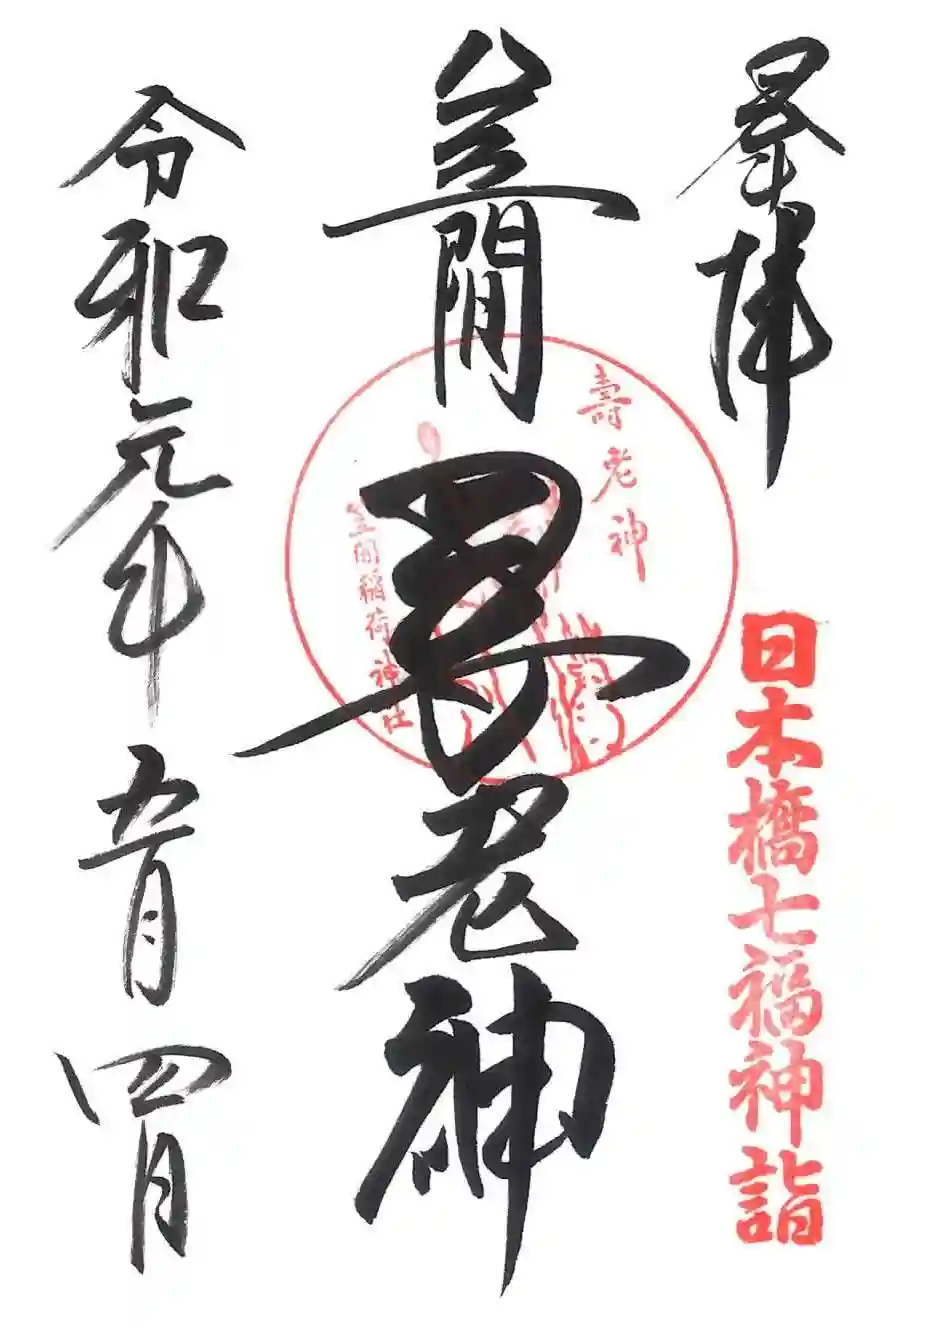 奉拝
日本橋七福神詣
笠間
壽老神
壽老神
笠間稲荷神社
令和元年五月四日